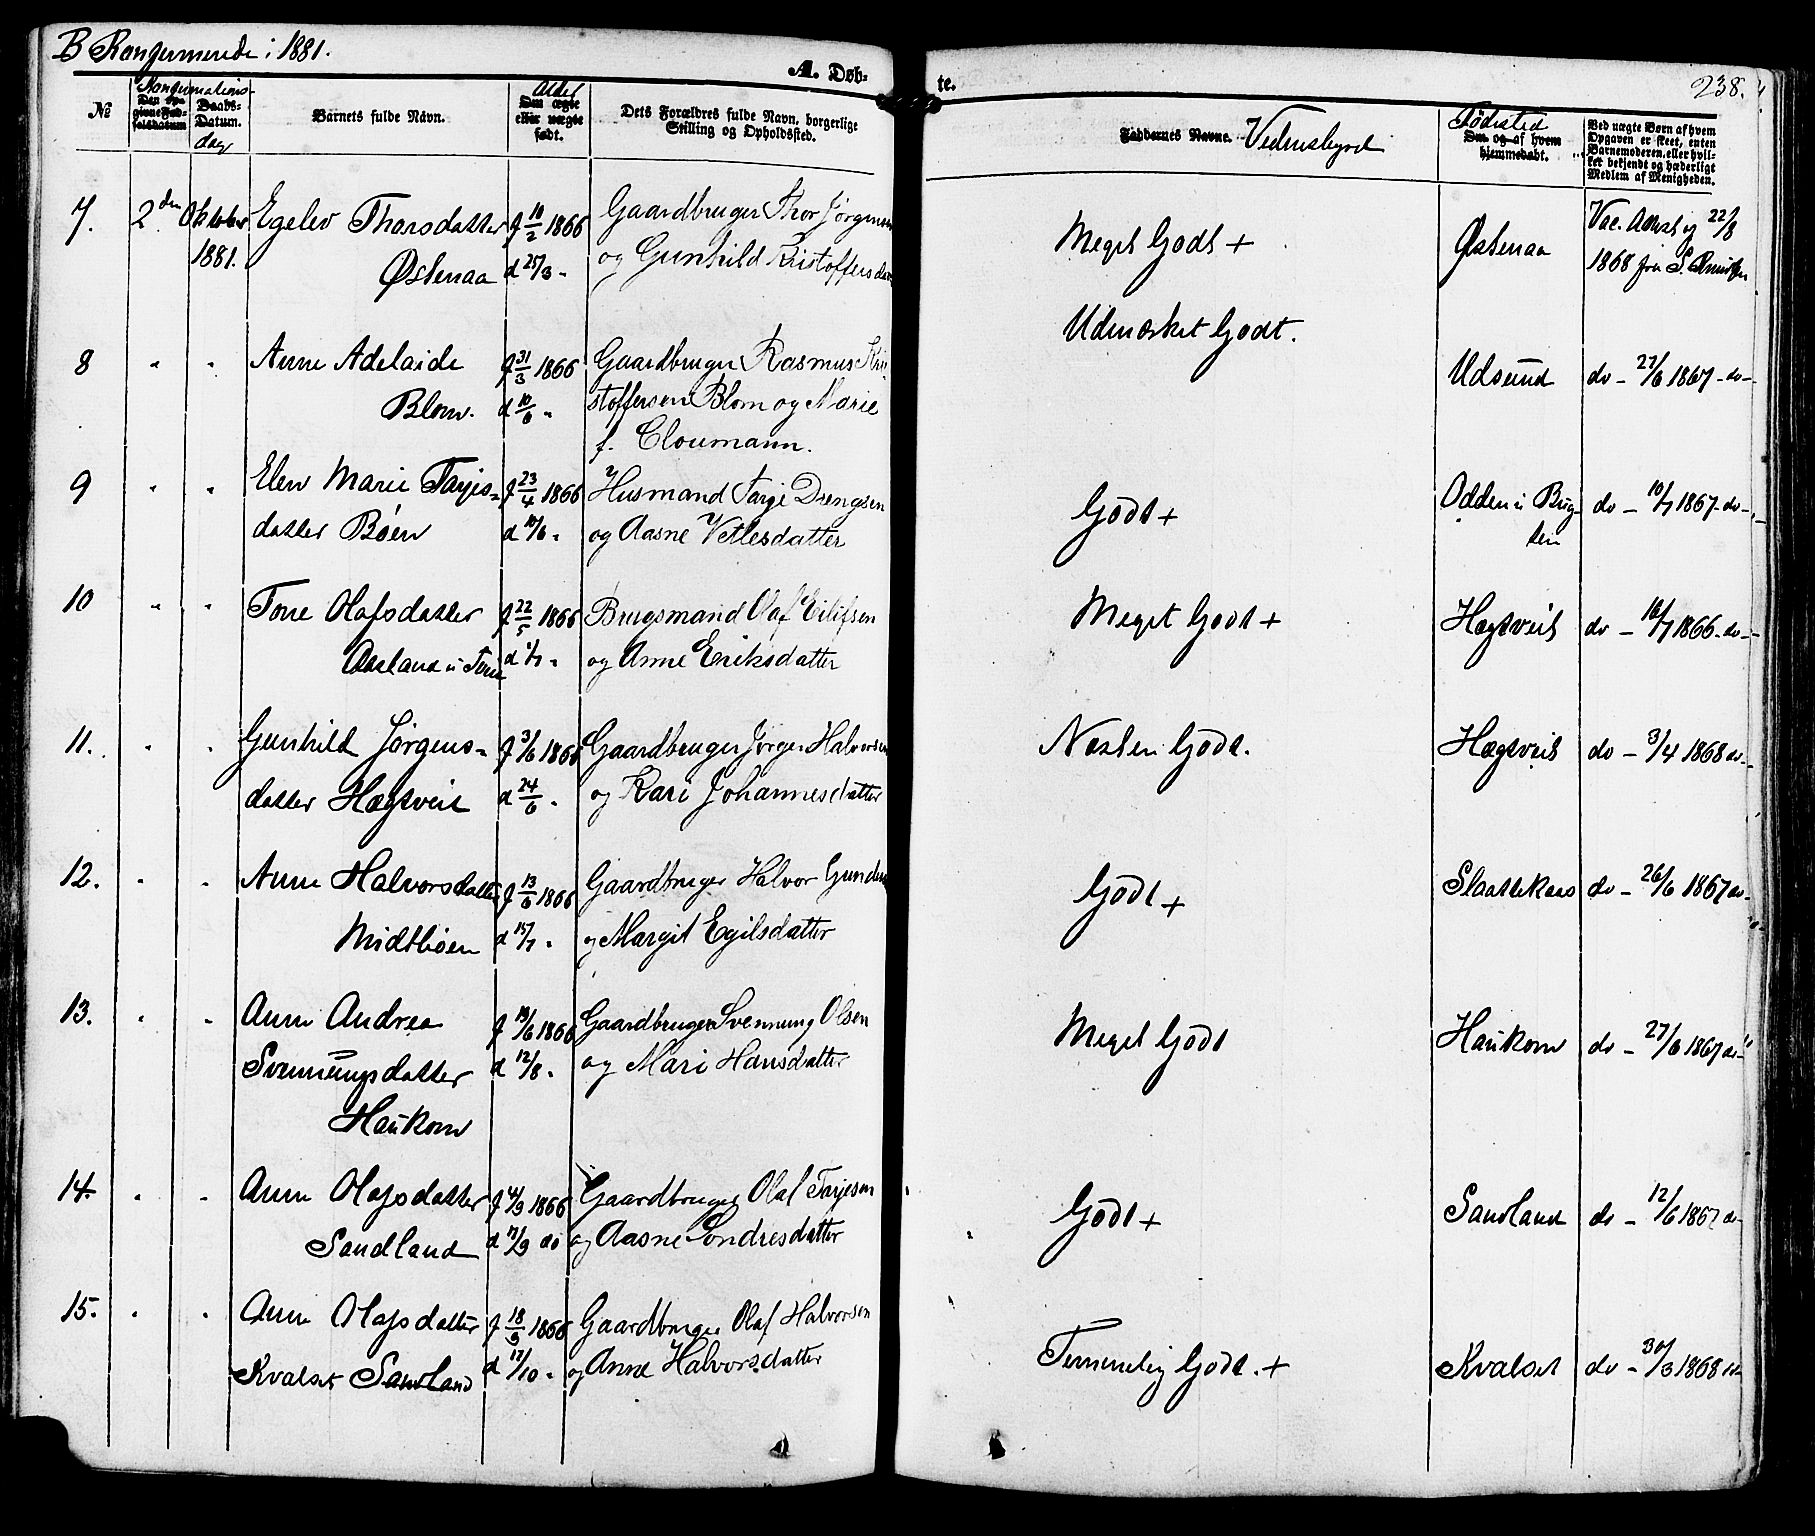 B Konfirmerede i 1881.
A. Døb-
te.
238.
№
Konfirmations-
Den op-
givne Fød-
selsdatum
Daabs-
Datum.
dag
Barnets fulde Navn.
Alder
Om ægte
eller uægte
født.
Dets Forældres fulde Navn, borgerlige
Stilling og Opholdsfted.
Faddernes Navne. Vidnesbyrd
Fødested
Om og af hvem
hjemmedøbt.
Ved uægte Børn af hvem
Opgaven er skeet, enten
Barnemoderen, eller hvil-
ket bekjendt og hæderligt
Medlem af Menigheden.
7. 2den Oktober Egelev Thorsdatter f 10/2 1866 Gaardbruger Thor Jørgensen Meget Godt + Østenaa Vac. Attest af 22/8
1881. Østenaa d 25/3 - og Gunhild Kristoffersdatter 1868 fra
8 " " Anne Adelaide f 31/3 1866 Gaardbruger Rasmus Kri- Udmærket Godt. Udsund do - 27/6 1867 - do -
Blom. d 10/6 " stoffersen Blom og Marie
f. Cloumann.
9 " " Elen Marie Tarjes- f 23/4 1866 Husmand Tarje Drengsen Godt + Odden u Bug- do - 10/7 1867 - do -
datter Bøen d 10/6 " og Aasne Vetlesdatter ten
10 " " Tone Olafsdatter f 22/5 1866 Brugsmand Olaf Eilifsen Meget Godt + Hægtveit do - 16/7 1866 - do -
Aasland u d 1/7 " og Anne Eriksdatter
11. " " Gunhild Jørgens- f 3/6 1866 Gaardbruger Jørgen Halvorsen Næsten Godt. Hægtveit do - 3/4 1868 do -
datter Hægtveit d 24/6 " og Kari Johannesdatter
12. " " Anne Halvorsdatter f 13/6 1866 Gaardbruger Halvor Godt + Slaattekaas do - 26/6 1867 do -
Midtbøen d 15/7 " og Margit Egilsdatter
13. " " Anne Andrea f 19/6 1866 Gaardbruger Svennung Olsen Meget Godt Haukom do - 27/6 1867 do -
Svennungsdatter d 12/8 " og Mari Hansdatter
Haukom
14 " " Anne Olafsdatter f 4/9 1866 Gaardbruger Olaf Tarjesen Godt + Sandland do - 12/6 1867 do -
Sandland d 17/9 do og Aasne Sondresdatter
15. " " Anne Olafsdatter f 18/9 1866 Gaardbruger Olaf Halvorsen Temmelig Godt. + Kvalset do - 30/3 1868 do -
Kvalset Sandland d 17/10 " og Anne Halvorsdatter